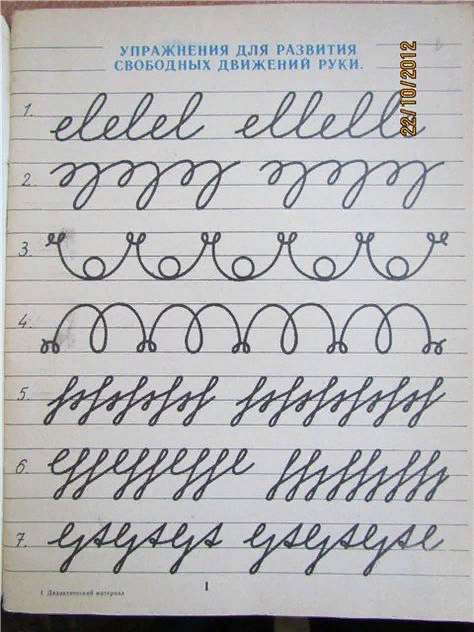 УПРАЖНЕНИЯ ДЛЯ РАЗВИТИЯ
СВОБОДНЫХ ДВИЖЕНИЙ РУКИ.
22/10/2012
1. elelel ellelle
2.
3.
4.
5.
6.
7.
1 Дидактический материал
1